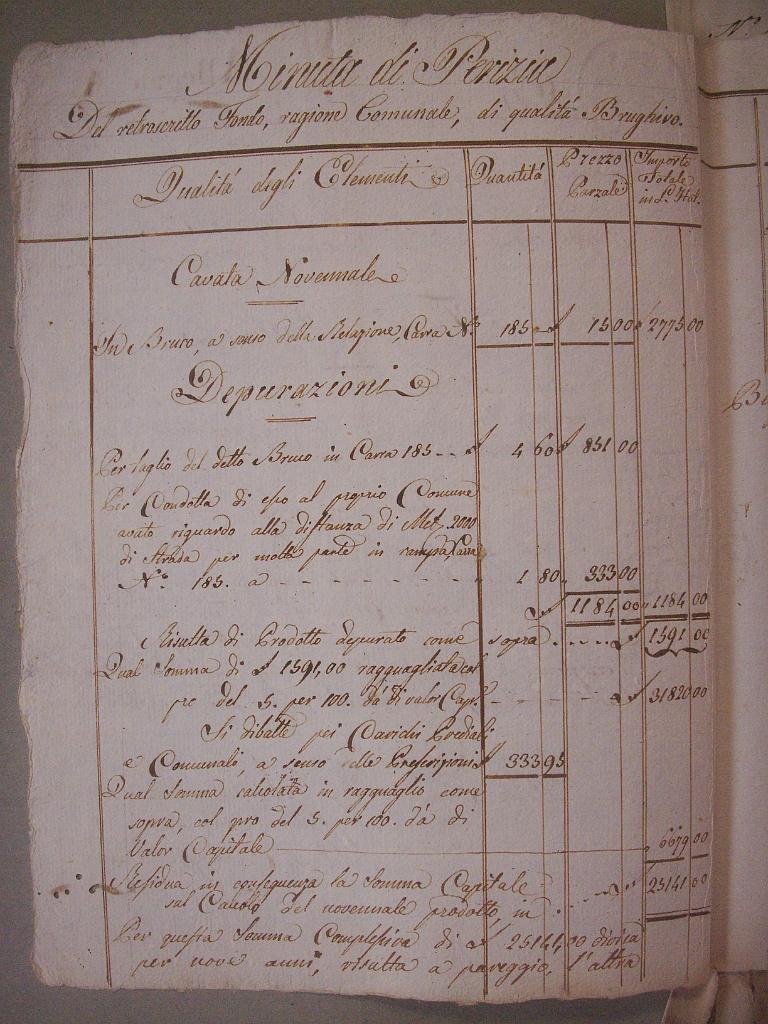 Minuta di Perizia
Del retroscritto Fondo, ragione Comunale, di qualità Brughivo.
Qualità degli Elementi Quantità Prezzo Parzale Importo Totale in L. Ital.
Cavata Novennale
In Bruco, a senso della Relazione, Carra N.º 185 15 00 2775 00
Depurazioni
Per taglio del detto Bruco in Carra 185 4 60 851 00
Per Condotta di esso al proprio Comune
avuto riguardo alla distanza di Met. 2000
di Strada per molta parte in rampa, Carra
N.º 185. a 1 80 333 00
1184 00 1184 00
Risulta di Prodotto depurato come sopra 1591 00
Qual Somma di £ 1591,00 ragguagliata col
pro del 5. per 100. dà di valor Cap. 31820 00
Si dibatte pei Carichi Prediali
e Comunali, a senso delle Prescrizioni £ 333 95
Qual Somma calcolata in ragguaglio come
sopra, col pro del 5. per 100. dà di
Valor Capitale 6679 00
Residua in conseguenza la Somma Capitale 25141 00
sul Calcolo del novennale prodotto, in
Per questa Somma Complessiva di £ 25141,00 divisa
per nove anni, risulta a pareggio, l'altra